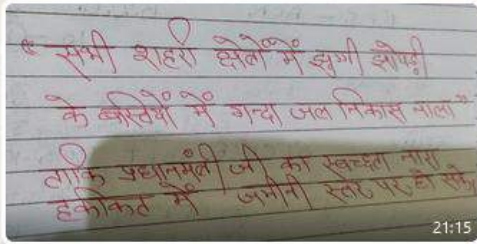 " सभी शहरी क्षेत्रों में झुग्गी झोपड़ी
के बस्तियों में गन्दा जल निकास नाला "
ताकि प्रधानमंत्री जी का स्वच्छता नारा
हकीकत में जमीनी स्तर पर हो सके
21:15